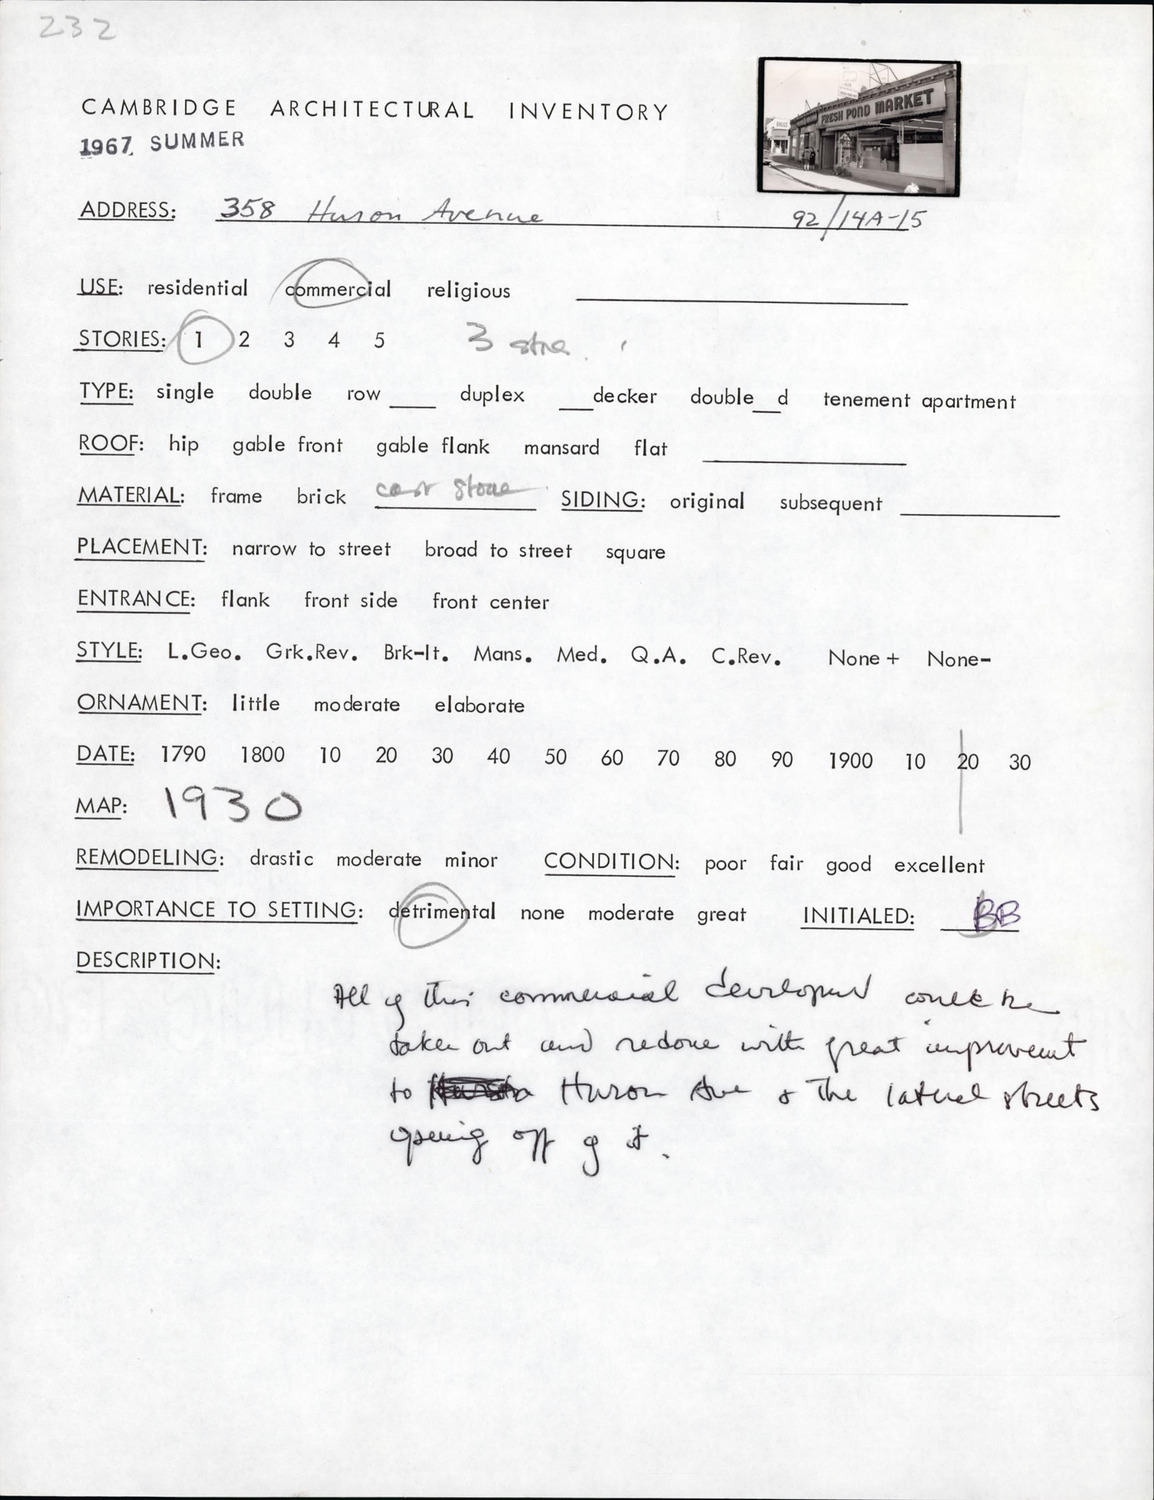 232
CAMBRIDGE ARCHITECTURAL INVENTORY
1967 SUMMER
FRESH POND MARKET
ADDRESS: 358 Huron Avenue 92/14A-15
USE: residential commercial religious
STORIES: 1 2 3 4 5 3
TYPE: single double row ____ duplex ___decker double__d tenement apartment
ROOF: hip gable front gable flank mansard flat
MATERIAL: frame brick cast stone SIDING: original subsequent
PLACEMENT: narrow to street broad to street square
ENTRANCE: flank front side front center
STYLE: L.Geo. Grk.Rev. Brk-It. Mans. Med. Q.A. C.Rev. None + None-
ORNAMENT: little moderate elaborate
DATE: 1790 1800 10 20 30 40 50 60 70 80 90 1900 10 20 30
MAP: 1930
REMODELING: drastic moderate minor CONDITION: poor fair good excellent
IMPORTANCE TO SETTING: detrimental none moderate great INITIALED: BB
DESCRIPTION:
All of this commercial development could be
taken out and redone with great improvement
to Huron Ave & the lateral streets
opening off of it.